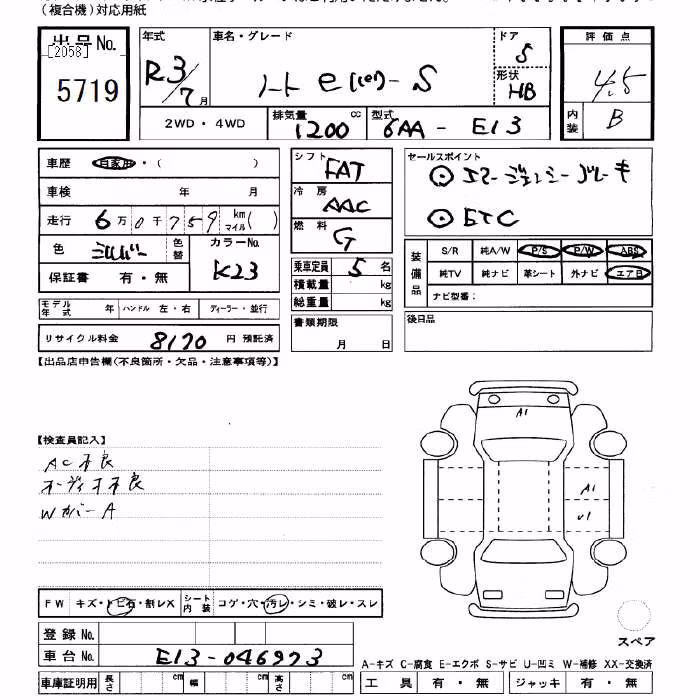 (複合機)対応用紙
出品No.
[2058]
5719
年式
R3/7月
車名・グレード
ノート e(パワ)ー S
ドア
5
形状
HB
評価点
4.5
内装
B
2WD・4WD
排気量
1200 cc
型式
6AA - E13
車歴 自家用・( )
車検 年 月
走行 6万0千759 km マイル( )
色 シルバー 色替
カラーNo.
K23
保証書 有・無
シフト
FAT
冷房
AAC
燃料
G
乗車定員 5 名
積載量 kg
総重量 kg
セールスポイント
⊙ エマージェンシーブレーキ
⊙ ETC
装備品
S/R 純A/W P/S P/W ABS
純TV 純ナビ 革シート 外ナビ エアB
ナビ型番:
モデル年式 年 ハンドル 左・右 ディーラー・並行
書類期限
月 日
後日品
リサイクル料金 8170 円 預託済
【出品店申告欄(不良箇所・欠品・注意事項等)】
【検査員記入】
AC不良
オーディオ不良
Wカバー A
A1
A1
U1
FW キズ・トビ石・割レX シート内装 コゲ・穴・汚レ・シミ・破レ・スレ
登録No.
車台No. E13-046973
スペア
A-キズ C-腐食 E-エクボ S-サビ U-凹ミ W-補修 XX-交換済
車庫証明用 長さ cm 幅 cm 高さ cm
工具 有・無 ジャッキ 有・無